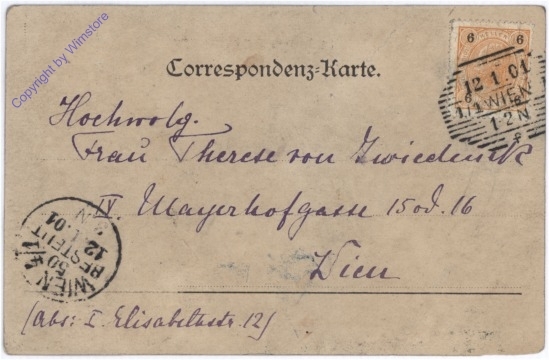 Copyright by Wimstore
6 6
12 1.01
1/1 WIEN
12N
Correspondenz-Karte.
Hochwolg.
Frau Therese von Zwiedineck
IV. Mayerhofgasse 15 od. 16
Wien
WIEN 4/1
50
BESTELLT
12 1 01
(Abs: I. Elisabethstr. 12)